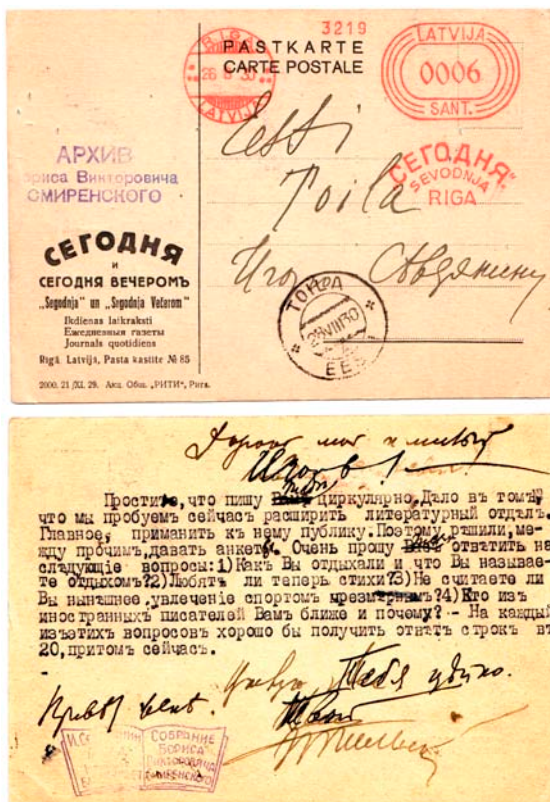 3219
PASTKARTE
CARTE POSTALE
RIGA
26 8 30
LATVIJA
LATVIJA
0006
SANT.
АРХИВ
Бориса Викторовича
СМИРЕНСКОГО
Eesti
„СЕГОДНЯ“
SEVODNJA
RIGA
Toila
СЕГОДНЯ
и
СЕГОДНЯ ВЕЧЕРОМЪ
„Segodnja" un „Segodnja Večerom"
Ikdienas laikraksti
Ежедневныя газеты
Journals quotidiens
Rīgā, Latvijā, Pasta kastīte № 85
TOILA
28 VIII 30
EESTI
2000. 21 /XI. 29. Акц. Общ. „РИТИ", Рига.
Дорогой мой и милый
Игорь!
Простите, что пишу циркулярно. Дѣло въ томъ,
что мы пробуемъ сейчасъ расширить литературный отдѣлъ.
Главное, приманить къ нему публику. Поэтому рѣшили, ме-
жду прочимъ, давать анкеты. Очень прошу отвѣтить на
слѣдующіе вопросы: 1) Какъ Вы отдыхали и что Вы называе-
те отдыхомъ? 2) Любятъ ли теперь стихи? 3) Не считаете ли
Вы нынѣшнее увлеченіе спортомъ чрезмѣрнымъ? 4) Кто изъ
иностранныхъ писателей Вамъ ближе и почему? - На каждый
изъ этихъ вопросовъ хорошо бы получить отвѣтъ строкъ въ
20, притомъ сейчасъ.
Тебя
Твой
СОБРАНИЕ
БОРИСА
ВИКТОРОВИЧА
СМИРЕНСКОГО